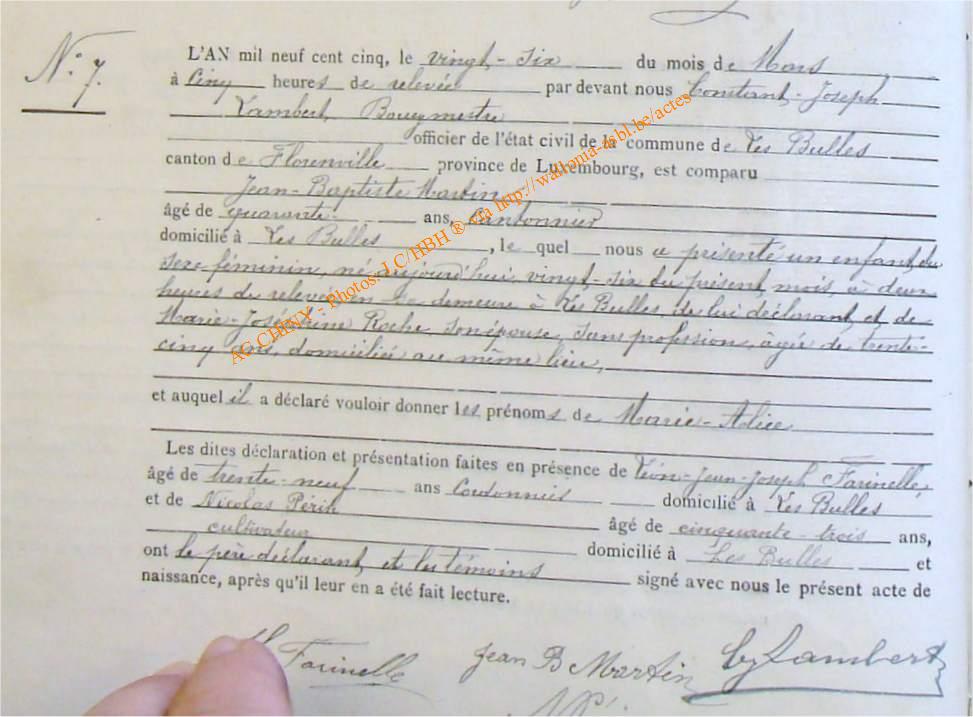 N° 7.
L'AN mil neuf cent cinq, le vingt-six du mois de Mars
à Cinq heures de relevée par devant nous Constant-Joseph
Lambert, Bourgmestre
officier de l'état civil de la commune de Les Bulles
canton de Florenville province de Luxembourg, est comparu
Jean-Baptiste Martin
âgé de quarante ans, Cantonnier
domicilié à Les Bulles, lequel nous a présenté un enfant du
sexe féminin, né aujourd'hui vingt-six du présent mois, à deux
heures de relevée, en sa demeure à Les Bulles, de lui déclarant et de
Marie-Joséphine Roche son épouse, sans profession, âgée de trente-
cinq ans, domiciliée au même lieu,
et auquel il a déclaré vouloir donner les prénoms de Marie-Alice
Les dites déclaration et présentation faites en présence de Léon-Jean-Joseph Farinelle,
âgé de trente-neuf ans Cordonnier domicilié à Les Bulles
et de Nicolas âgé de cinquante-trois ans,
cultivateur domicilié à Les Bulles et
ont le père déclarant, et les témoins signé avec nous le présent acte de
naissance, après qu'il leur en a été fait lecture.
Farinelle Jean B Martin Lambert
AC CHINY - Photos JLC/HBH ® via http://wallonia-asbl.be/actes